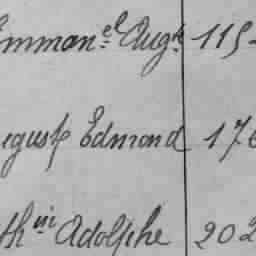 Emman.el Aug.te 115
Auguste Edmond 176
th.in Adolphe 202